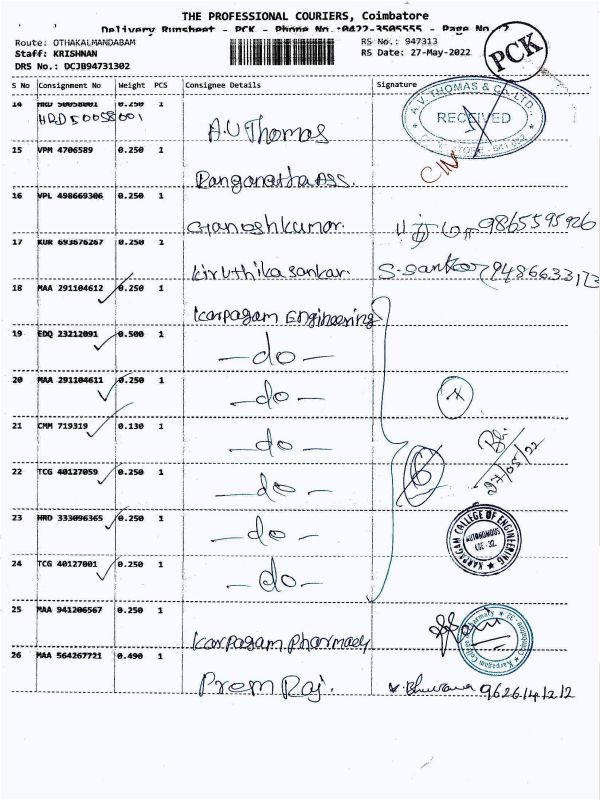 THE PROFESSIONAL COURIERS, Coimbatore
Delivery Runsheet - PCK - Phone No.:0422-3505555 - Page No. 2
Route: OTHAKALMANDABAM
RS No.: 947313
PCK
Staff: KRISHNAN
RS Date: 27-May-2022
DRS No.: DCJB94731302
S No Consignment No Weight PCS Consignee Details Signature
14 HRD 50058001 0.250 1
HRD50058001
A.V Thomas
A.V. THOMAS & CO. LTD.
RECEIVED
15 VPM 4706589 0.250 1
Ranganatha Ass.
16 VPL 498669306 0.250 1
Ganeshkumar. 9865595926
17 KUR 693676267 0.250 1
Kiruthika Sankar. S. Sankar 9486633173
18 MAA 291104612 0.250 1
Karpagam Engineering
19 EDQ 23212091 0.500 1
- do -
20 MAA 291104611 0.250 1
- do -
21 CMM 719319 0.130 1
- do -
27/05/22
22 TCG 40127059 0.250 1
- do -
23 HRD 333096365 0.250 1
- do -
KARPAGAM COLLEGE OF ENGINEERING
AUTONOMOUS
24 TCG 40127001 0.250 1
- do -
25 MAA 941206567 0.250 1
Karpagam Pharmacy
Karpagam College of Pharmacy
26 MAA 564267721 0.490 1
Prem Raj. V. Bhuvana 9626141212